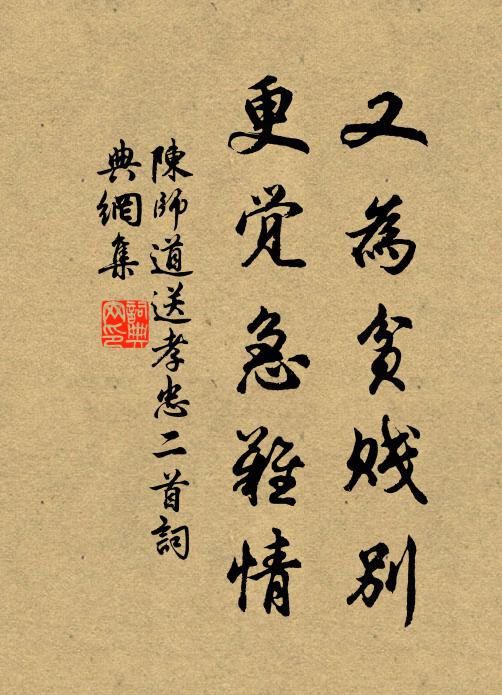 又為貧賤別
更觉急難情
陳師道送孝忠二首詞
典網集
詞典
网印